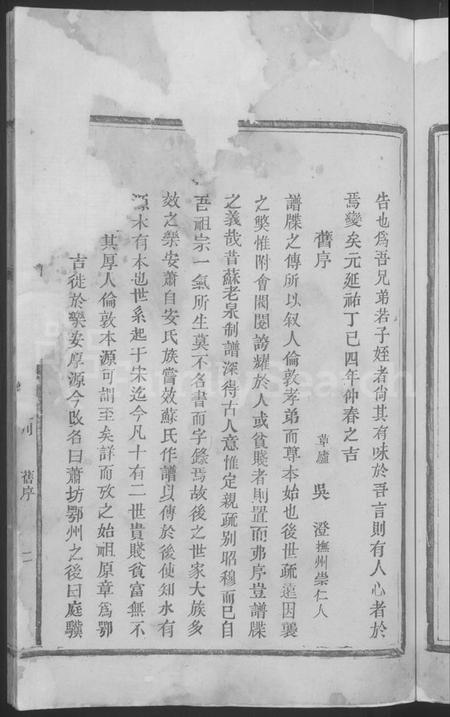 告也爲吾兄弟若子姪者尙其有味於吾言則有人心者於
焉變矣元延祐丁巳四年仲春之吉
舊序
草廬 吳 澄撫州崇仁人
譜牒之傳所以叙人倫敦孝弟而尊本始也後世疏遠因襲
之獘惟附會閥閱誇耀於人或貧賤者則置而弗序豈譜牒
之義哉昔蘇老泉制譜深得古人意惟定親疏别昭穆而已自
吾祖宗一氣所生莫不各書而字錄焉故後之世家大族多
效之樂安蕭自安氏族嘗效蘇氏作譜以傳於後使知水有
源木有本也世系起于宋迄今凡十有二世貴賤貧富無不
其厚人倫敦本源可謂至矣詳而攷之始祖原章爲鄂
古徙於樂安厚源今改名曰蕭坊鄂州之後曰庭驥
舊序
二